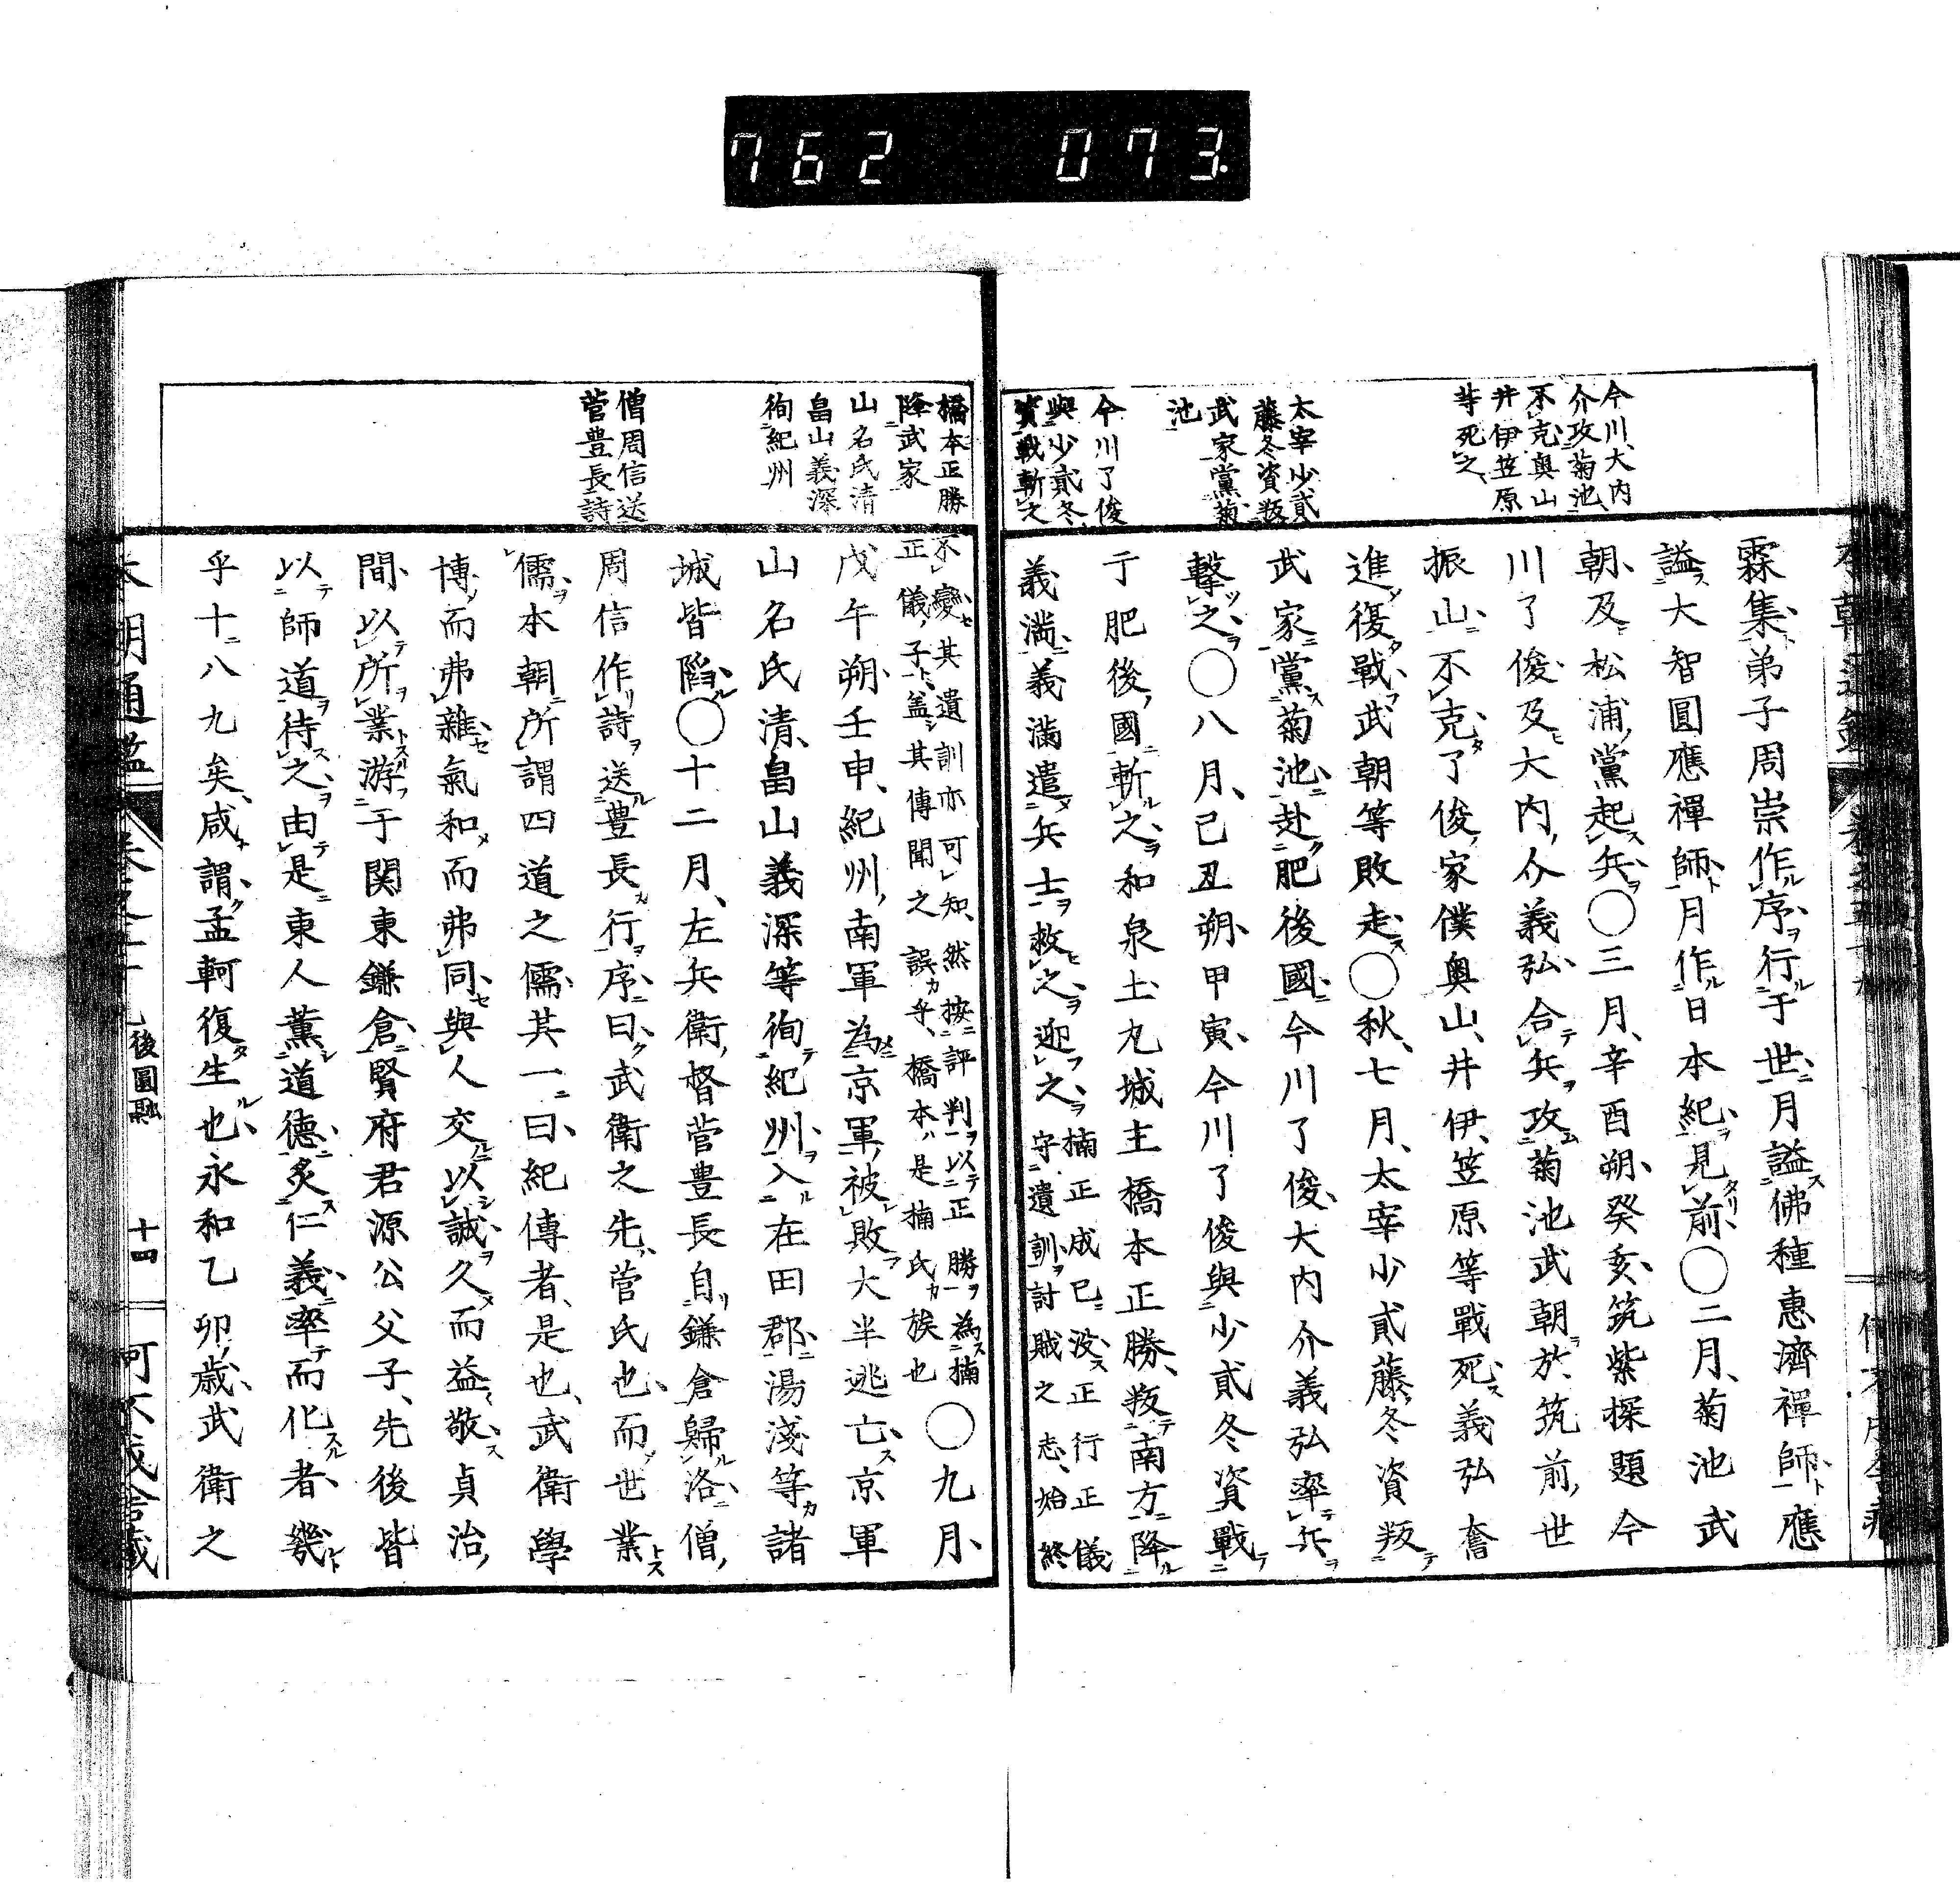 762 073.
今川、大内
介攻菊池、
不克奥山
井伊笠原
等死之、
太宰少貳
藤冬資叛
武家黨菊
池
今川了俊
與少貳冬
資戰斬之
霖集弟子周崇作序行于世月謚佛種惠濟禪師應
謚大智圓應禪師月作日本紀見前〇二月、菊池武
朝、及松浦黨起兵〇三月、辛酉朔、癸亥、筑紫探題今
川了俊及大内介義弘合兵攻菊池武朝於筑前、世
振山、不克了俊家僕奥山、井伊、笠原等戰死義弘奮
進復戰、武朝等敗走〇秋、七月、太宰少貳藤冬資叛
武家黨菊池赴肥後國今川了俊、大内介義弘率兵
擊之〇八月、己丑朔、甲寅、今川了俊與少貳冬資戰
于肥後國斬之和泉土丸城主橋本正勝、叛南方降
義滿義滿遣兵士救之迎之
楠正成已没正行正儀
守遺訓計賊之志、始終
不變其遺訓亦可知、然按評判以正勝為楠
正儀子盖其傳聞之誤乎、橋本是楠氏族也
〇九月、
戊午朔壬申、紀州南軍為京軍被敗大半逃亡京軍
山名氏清、畠山義深等徇紀州入在田郡湯淺等諸
城皆陷〇十二月、左兵衛督菅豊長自鎌倉歸洛僧
周信作詩送豊長行序曰、武衛之先菅氏也、而世業
儒本朝所謂四道之儒其一曰、紀傳者、是也、武衛學
博而弗雜氣和而弗同與人交以誠久而益敬貞治
間以所業游于関東鎌倉賢府君源公父子、先後皆
以師道待之由是東人薰道德炙仁義率而化者、幾
乎十八九矣、咸謂孟軻復生也永和乙卯歳、武衛之
橋本正勝
降武家
山名氏清
畠山義深
徇紀州
僧周信送
菅豊長詩
後圓融
十四